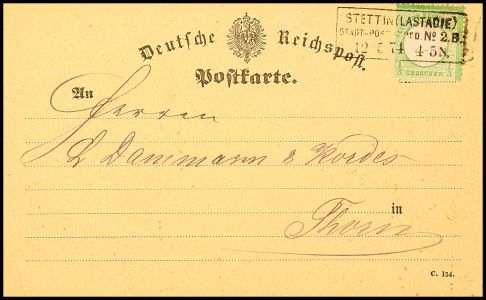 STETTIN (LASTADIE)
STADT-POST No 2.B.
12 5 74 4-5N.
Deutsche Reichspost.
GROSCHEN
Postkarte.
An
Herren
L Dammann & Kordes
in
Thorn
C. 154.